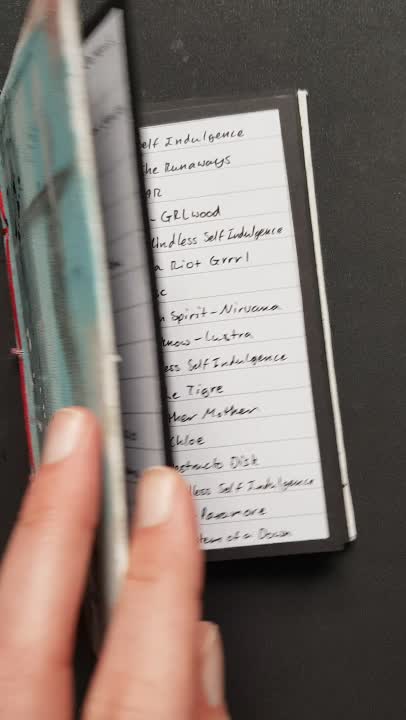 elf Indulgence
he Runaways
AR
- GRLwood
indless Self Indulgence
a Riot Grrrl
c
n Spirit - Nirvana
now - Lustra
ess Self Indulgence
e Tigre
ther Mother
Chloe
Disk
less Self Indulgence
Paramore
tem of a Down